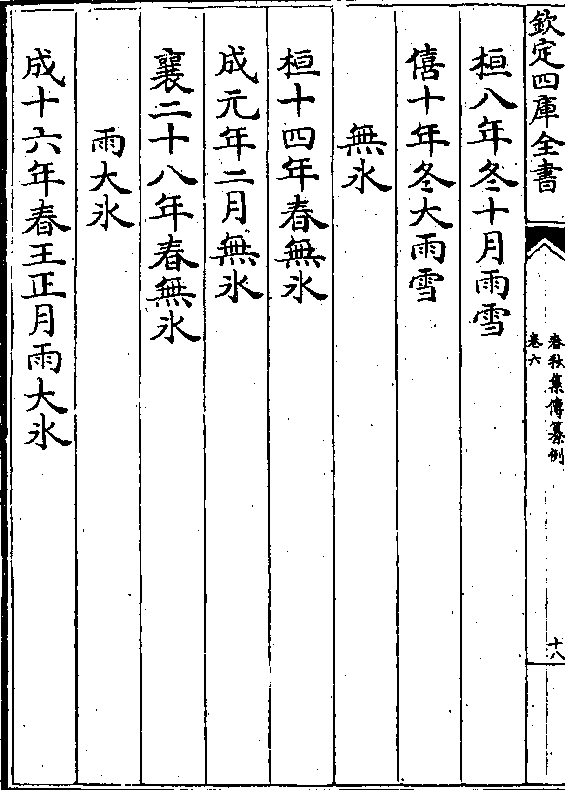 欽定四庫全書
春秋集傳纂例
卷六
十八
桓八年冬十月雨雪
僖十年冬大雨雪
無氷
桓十四年春無氷
成元年二月無氷
襄二十八年春無氷
雨大氷
成十六年春王正月雨大氷